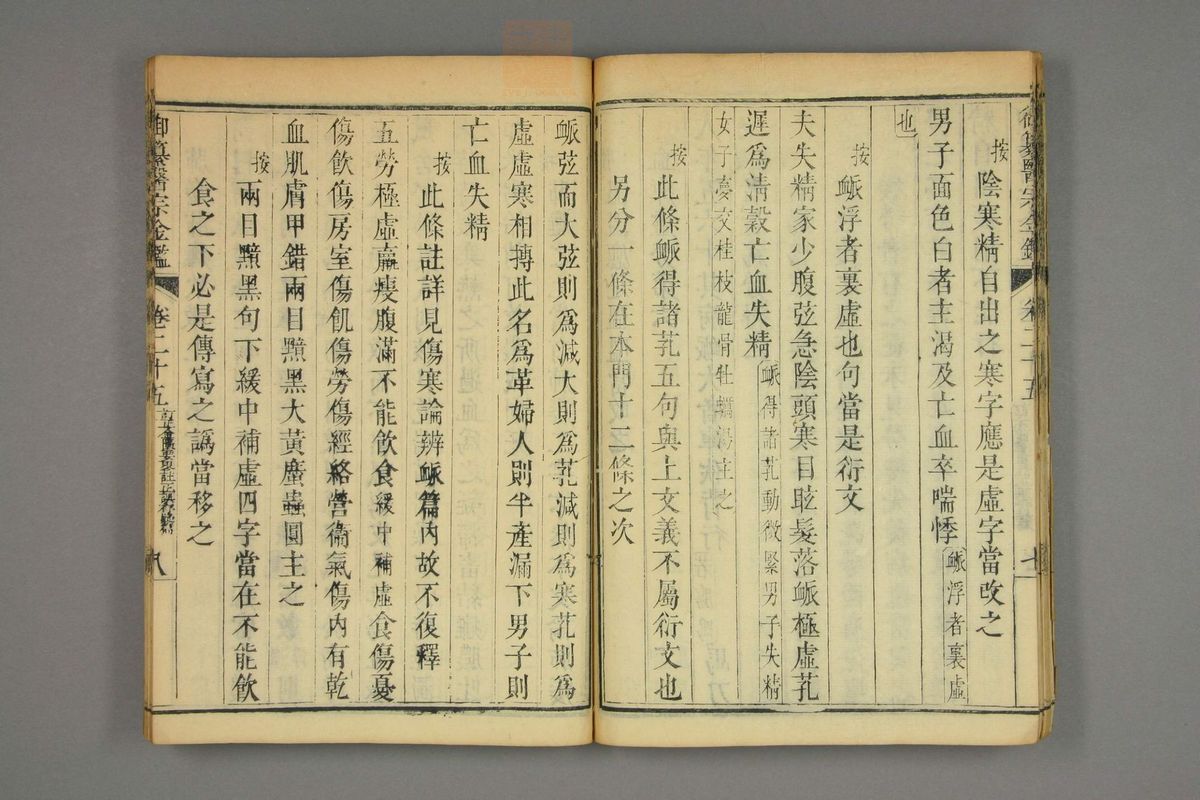 御纂醫宗金鑑
卷二十五
七
按陰寒精自出之寒字應是虛字當改之
男子面色白者主渴及亡血卒喘悸脈浮者裏虛
也
按脈浮者裏虛也句當是衍文
夫失精家少腹弦急陰頭寒目眩髮落脈極虛芤
遲爲清穀亡血失精脈得諸芤動微緊男子失精
女子夢交桂枝龍骨牡蠣湯主之
按此條脈得諸芤五句與上文義不屬衍文也
另分一條在本門十二條之次
脈弦而大弦則爲減大則爲芤減則爲寒芤則爲
虛虛寒相搏此名爲革婦人則半產漏下男子則
亡血失精
按此條註詳見傷寒論辨脈篇內故不復釋
五勞極虛羸瘦腹滿不能飲食緩中補虛食傷憂
傷飲傷房室傷飢傷勞傷經絡營衞氣傷內有乾
血肌膚甲錯兩目黯黑大黃䗪蟲圓主之
按兩目黯黑句下緩中補虛四字當在不能飲
食之下必是傳寫之譌當移之
御纂醫宗金鑑
卷二十五
八